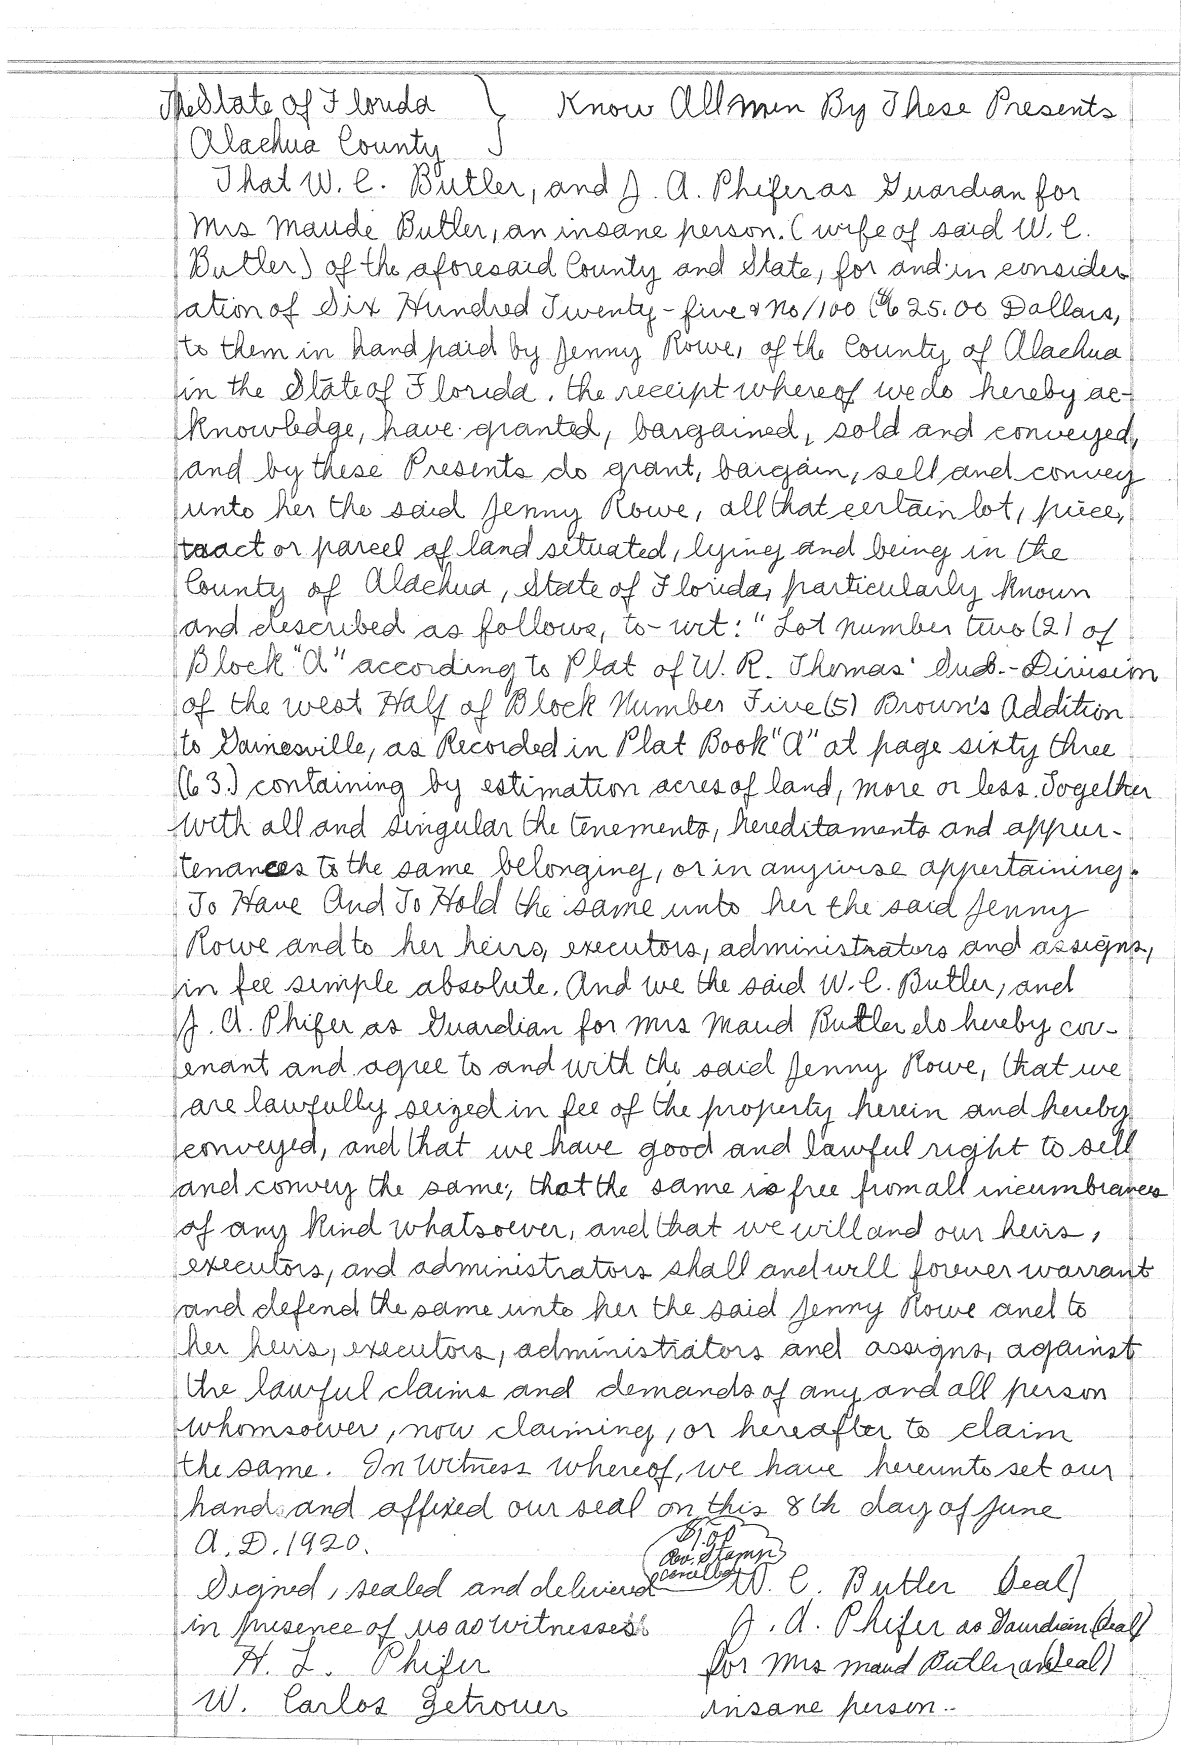 The State of Florida } Know All Men By These Presents
Alachua County
That W. C. Butler, and J. A. Phifer as Guardian for
Mrs Maude Butler, an insane person. (wife of said W. C.
Butler) of the aforesaid County and State, for and in consider
ation of Six Hundred Twenty-five & No/100 ($625.00 Dollars,
to them in hand paid by Jenny Rowe, of the County of Alachua
in the State of Florida, the receipt whereof we do hereby ac-
knowledge, have granted, bargained, sold and conveyed,
and by these Presents do grant, bargain, sell and convey
unto her the said Jenny Rowe, all that certain lot, piece,
tract or parcel of land situated, lying and being in the
County of Alachua, State of Florida, particularly known
and described as follows, to-wit: "Lot number two (2) of
Block "A" according to Plat of W. R. Thomas' Sub.-Division
of the west Half of Block Number Five (5) Brown's Addition
to Gainesville, as Recorded in Plat Book "A" at page sixty three
(63.) containing by estimation acres of land, more or less. Together
with all and singular the tenements, hereditaments and appur-
tenances to the same belonging, or in anywise appertaining.
To Have And To Hold the same unto her the said Jenny
Rowe and to her heirs, executors, administrators and assigns,
in fee simple absolute. And we the said W. C. Butler, and
J. A. Phifer as Guardian for Mrs Maud Butler do hereby cov-
enant and agree to and with the said Jenny Rowe, that we
are lawfully seized in fee of the property herein and hereby
conveyed, and that we have good and lawful right to sell
and convey the same; that the same is free from all incumbrances
of any kind whatsoever, and that we will and our heirs,
executors, and administrators shall and will forever warrant
and defend the same unto her the said Jenny Rowe and to
her heirs, executors, administrators and assigns, against
the lawful claims and demands of any and all person
whomsoever, now claiming, or hereafter to claim
the same. In Witness whereof, we have hereunto set our
hands and affixed our seal on this 8th day of June
A. D. 1920.
$1.00
Rev. Stamps
cancelled
Signed, sealed and delivered W. C. Butler (Seal)
in presence of us as witnesses: J. A. Phifer as Gaurdian (Seal)
H. L. Phifer for Mrs Maud Butler an (Seal)
W. Carlos Getrouer insane person..